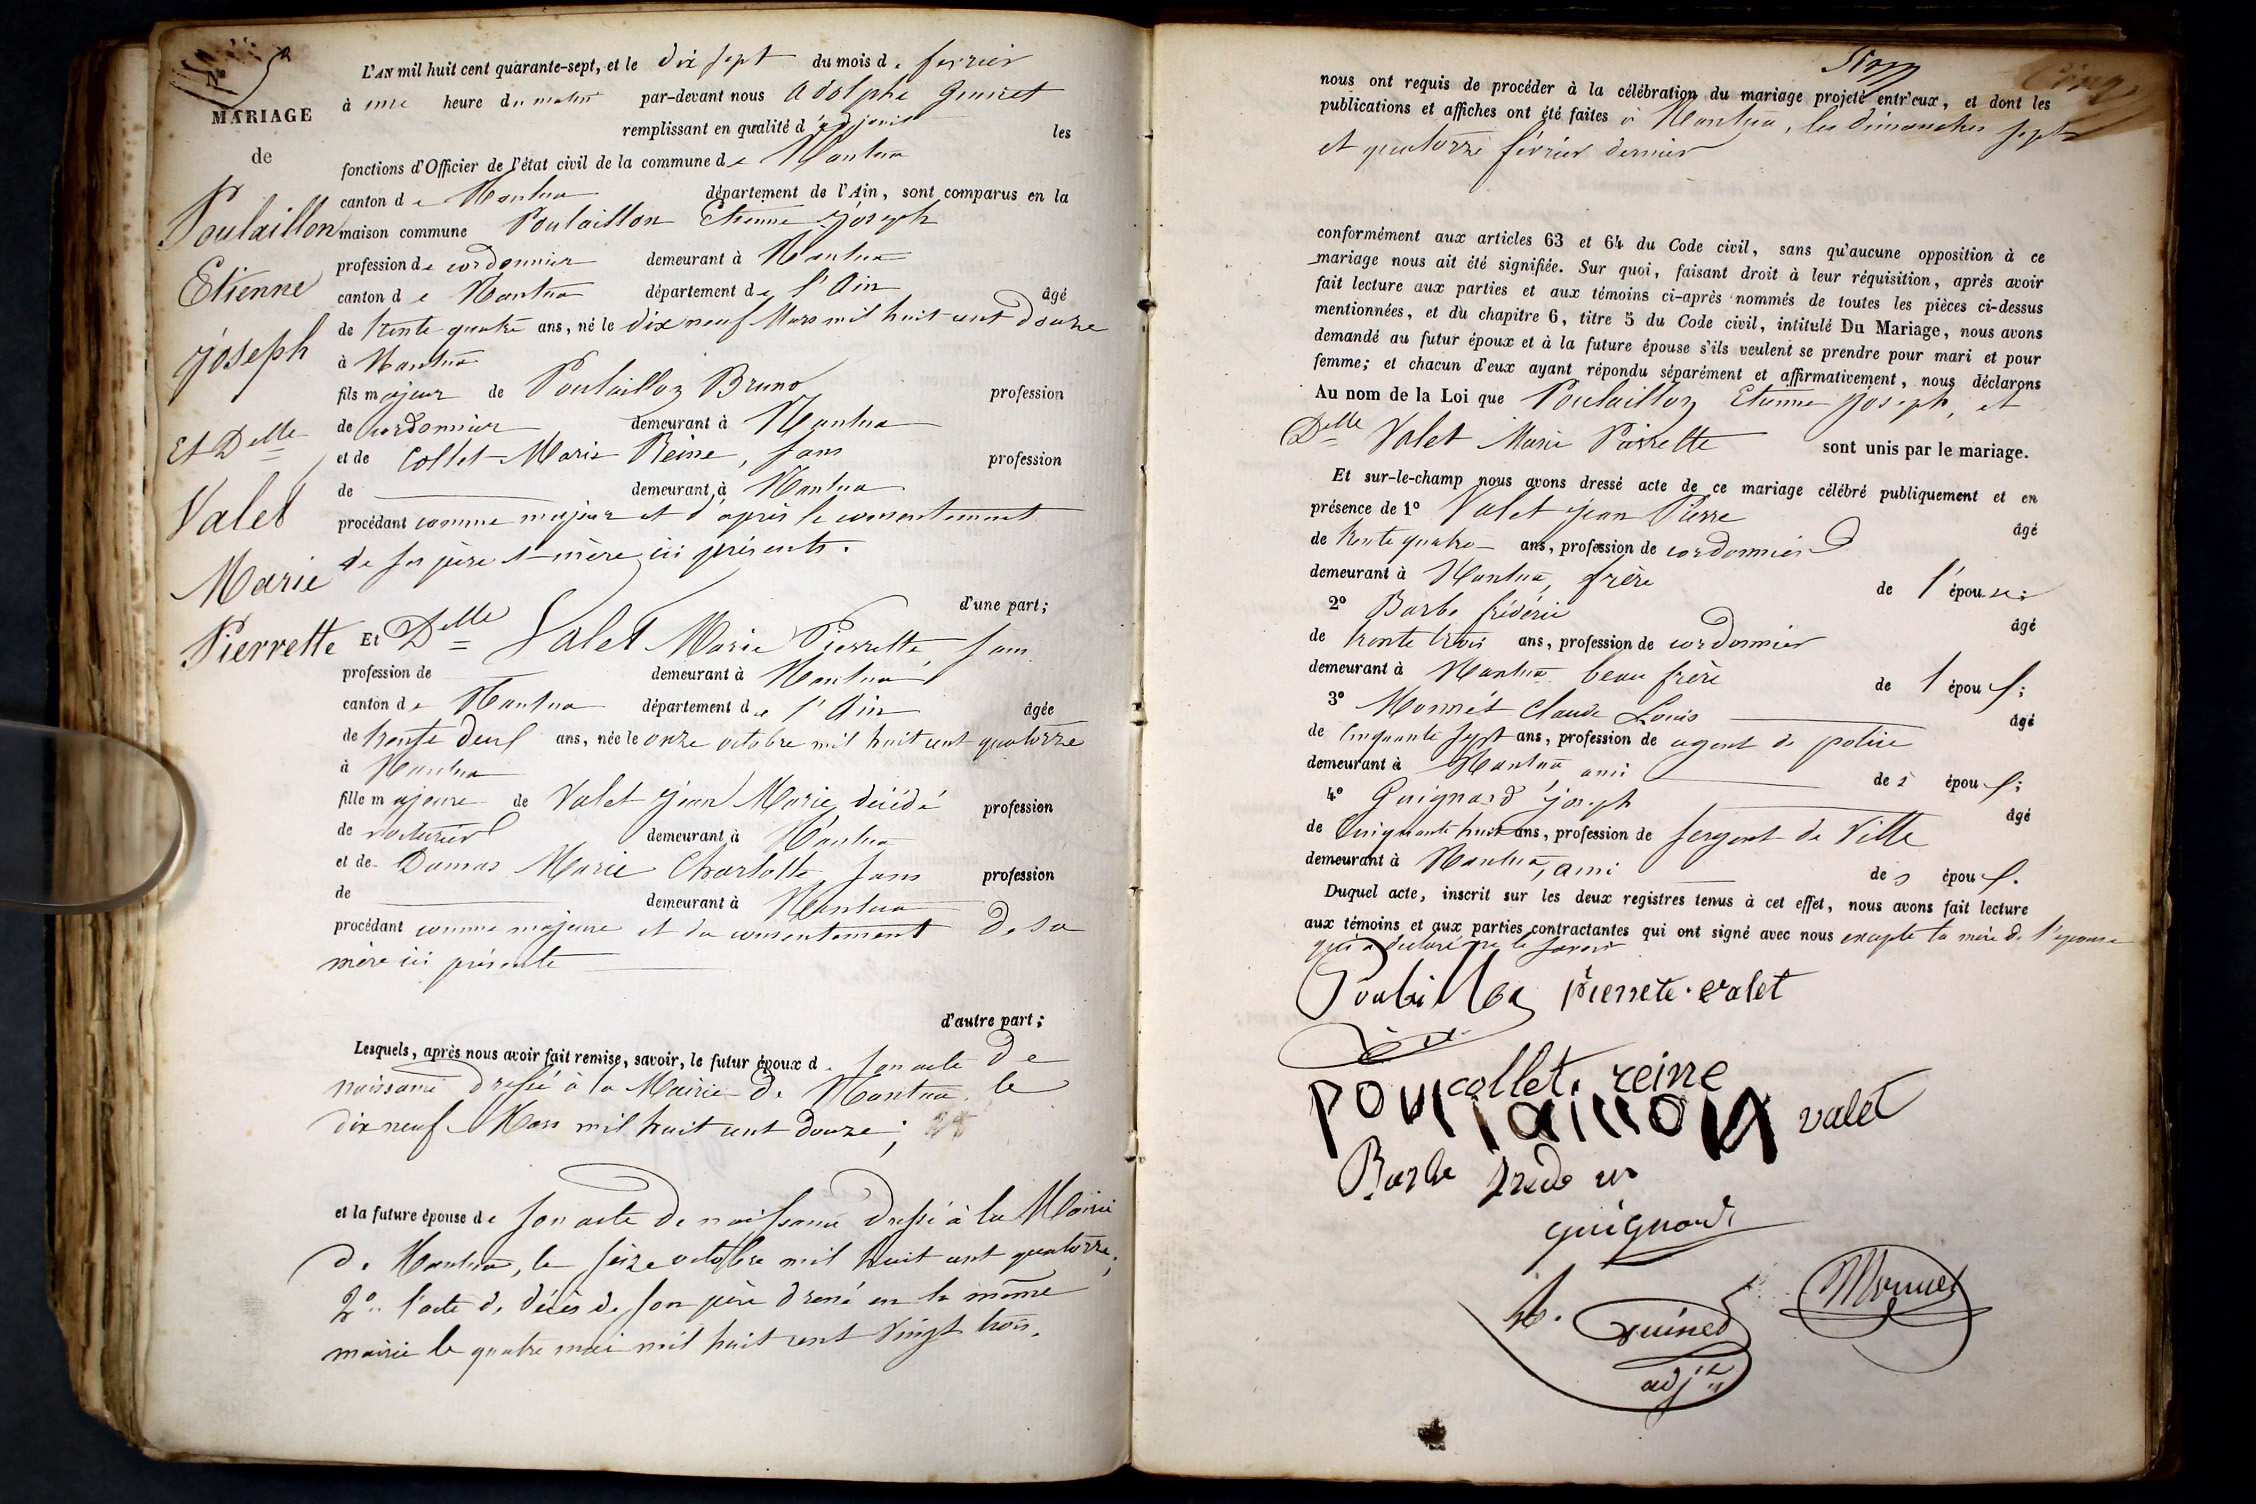 N° 5
MARIAGE
de
Poulaillon
Etienne
joseph
et Delle
Valet
Marie
Pierrette
L'AN mil huit cent quarante-sept, et le dix sept du mois de fevrier
à une heure du matin par-devant nous Adolphe Guinet
remplissant en qualité d'adjoint les
fonctions d'Officier de l'état civil de la commune de Nantua
canton de Nantua département de l'Ain, sont comparus en la
maison commune Poulaillon Etienne joseph
profession de cordonnier demeurant à Nantua
canton de Nantua département de l'Ain âgé
de trente quatre ans, né le dix neuf Mars mil huit cent douze
à Nantua
fils majeur de Poulaillon Bruno profession
de cordonnier demeurant à Nantua
et de Collet Marie Reine, sans profession
de demeurant à Nantua
procédant comme majeur et d'après le consentement
de ses père et mère ici présents.
d'une part;
Et Delle Valet Marie Pierrette, sans
profession de demeurant à Nantua
canton de Nantua département de l'Ain âgée
de trente deux ans, née le onze octobre mil huit cent quatorze
à Nantua
fille majeure de Valet jean Marie, décédé profession
de voiturier demeurant à Nantua
et de Damas Marie Charlotte sans profession
de demeurant à Nantua
procédant comme majeure et du consentement de sa
mère ici présente
d'autre part;
Lesquels, après nous avoir fait remise, savoir, le futur époux de son acte de
naissance dressé à la Mairie de Nantua le
dix neuf Mars mil huit cent douze;
et la future épouse de son acte de naissance dressé à la Mairie
de Nantua, le seize octobre mil huit cent quatorze;
2° l'acte de décès de son père dressé en la même
mairie le quatre mai mil huit cent vingt trois.
nous ont requis de procéder à la célébration du mariage projeté entr'eux, et dont les
publications et affiches ont été faites à Nantua, les dimanches sept
et quatorze février dernier
conformément aux articles 63 et 64 du Code civil, sans qu'aucune opposition à ce
mariage nous ait été signifiée. Sur quoi, faisant droit à leur réquisition, après avoir
fait lecture aux parties et aux témoins ci-après nommés de toutes les pièces ci-dessus
mentionnées, et du chapitre 6, titre 5 du Code civil, intitulé Du Mariage, nous avons
demandé au futur époux et à la future épouse s'ils veulent se prendre pour mari et pour
femme; et chacun d'eux ayant répondu séparément et affirmativement, nous déclarons
Au nom de la Loi que Poulaillon Etienne joseph, et
Delle Valet Marie Pierrette sont unis par le mariage.
Et sur-le-champ nous avons dressé acte de ce mariage célébré publiquement et en
présence de 1° Valet jean Pierre âgé
de trente quatre ans, profession de cordonnier
demeurant à Nantua, frère de l'épouse;
2° Barbe frédéric âgé
de trente trois ans, profession de cordonnier
demeurant à Nantua beau frère de l'époux;
3° Monnet Claude Louis âgé
de Cinquante sept ans, profession de agent de police
demeurant à Nantua, ami des époux;
4° Guignard joseph âgé
de Cinquante huit ans, profession de sergent de Ville
demeurant à Nantua, ami des époux.
Duquel acte, inscrit sur les deux registres tenus à cet effet, nous avons fait lecture
aux témoins et aux parties contractantes qui ont signé avec nous excepté la mère de l'epouse
qui a déclaré ne le savoir
Poulaillon pierrete valet
collet. reine
poulaillon valet
Barbe frederic
guignard
A. Guinet Monnet
adjt